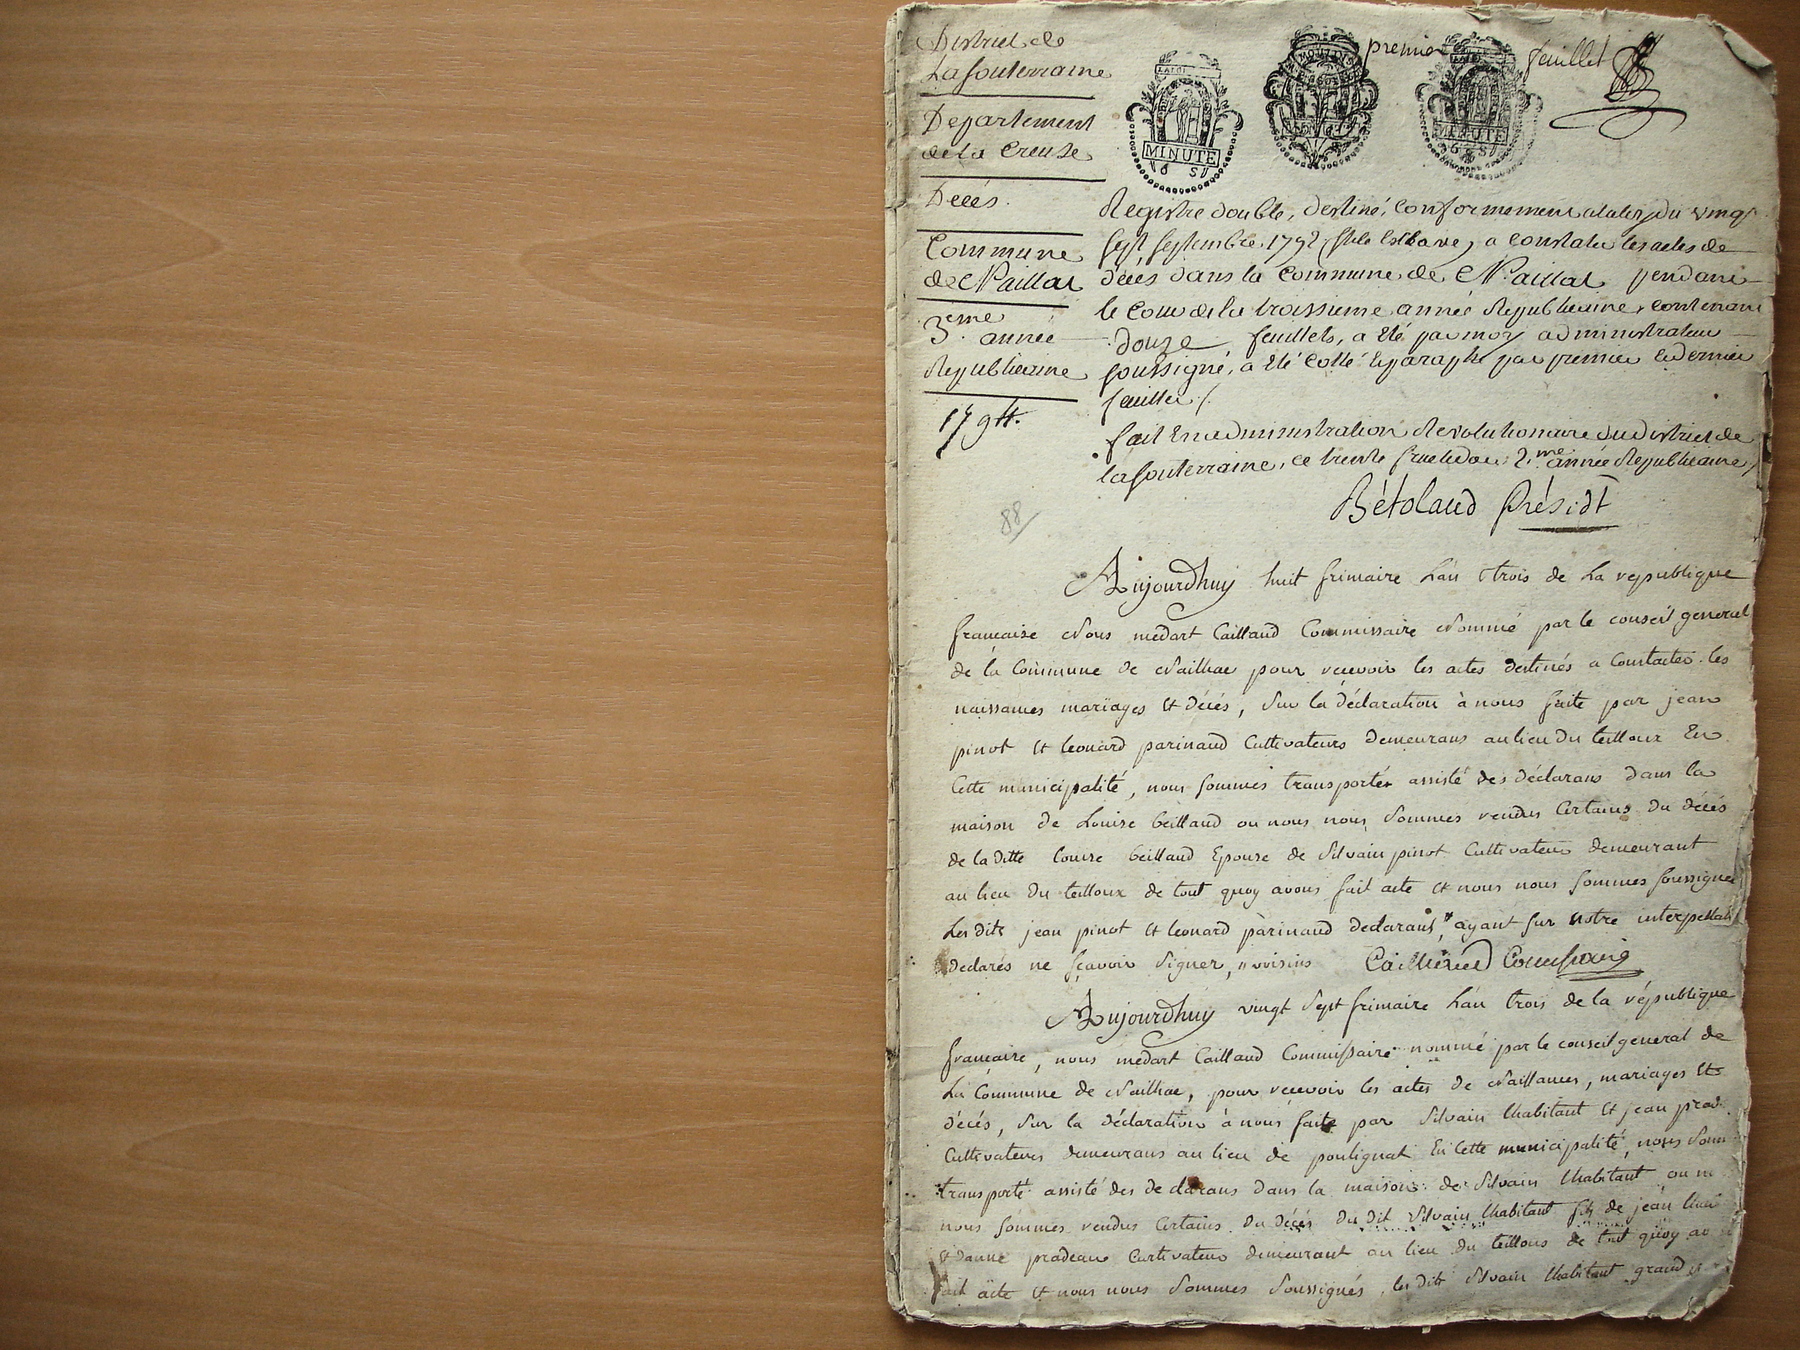 premier feuillet
District de
Lasouterraine
Departement
de la Creuse
Décés.
Commune
de Naillat
3.eme année
Republicaine
1794.
LA LOI
MINUTE
6 S
MINUTE
6 S
Registre double, destiné, conformement a la loy du vingt
sept septembre 1792 (stile Esclave) a constater les actes de
décés dans la commune de Naillat pendant
le cour de la troissieme année Republicaine, contenant
douze feuillets, a été par moy administrateur
soussigné, a été cotté et paraphé par premier et dernier
feuillet /.
fait en administration Revolutionaire du district de
lasouterraine, ce trente fructidor 2.me année Republicaine /
Bétolaud Présidt
88
Aujourdhuy huit frimaire L'an trois de La republique
francaise Nous medart Caillaud Commissaire Nommé par le conseil general
de la Commune de Nailhac pour recevoir les actes destinés a Constater les
naissances mariages et décés, Sur la déclaration à nous faite par jean
pinot et leonard parinaud Cultivateurs demeurans au lieu du teilloux En
Cette municipalité, nous sommes transportés assisté des déclarans dans la
maison de Louise beillaud ou nous nous sommes rendus Certains du décés
de la ditte louise beillaud Epouse de Silvain pinot Cultivateur demeurant
au lieu du teilloux de tout quoy avons fait acte et nous nous sommes soussignés
Les dits jean pinot et leonard pàrinaud declarans " ayant sur notre interpellat
declarés ne sçavoir signer, " voisins Caillaud Commissaire
Aujourdhuy vingt sept frimaire L'an trois de la république
francaise, nous medart Caillaud Commissaire nommé par le conseil general de
La Commune de Nailhac, pour recevoir les actes de Naissances, mariages et
décés, Sur la déclaration à nous faite par Silvain Lhabitant et jean prad
Cultivateurs demeurans au lieu de poulignat En Cette municipalité, nous somm
transporté assisté des declarans dans la maison de Silvain Lhabitant ou n
nous sommes rendus Certains du décés du dit Silvain Lhabitant fils de jean
et danne pradeau Cultivateur demeurant au lieu du teilloux de tout quoy av
fait acte et nous nous sommes soussignés les dits Silvain Lhabitant grand